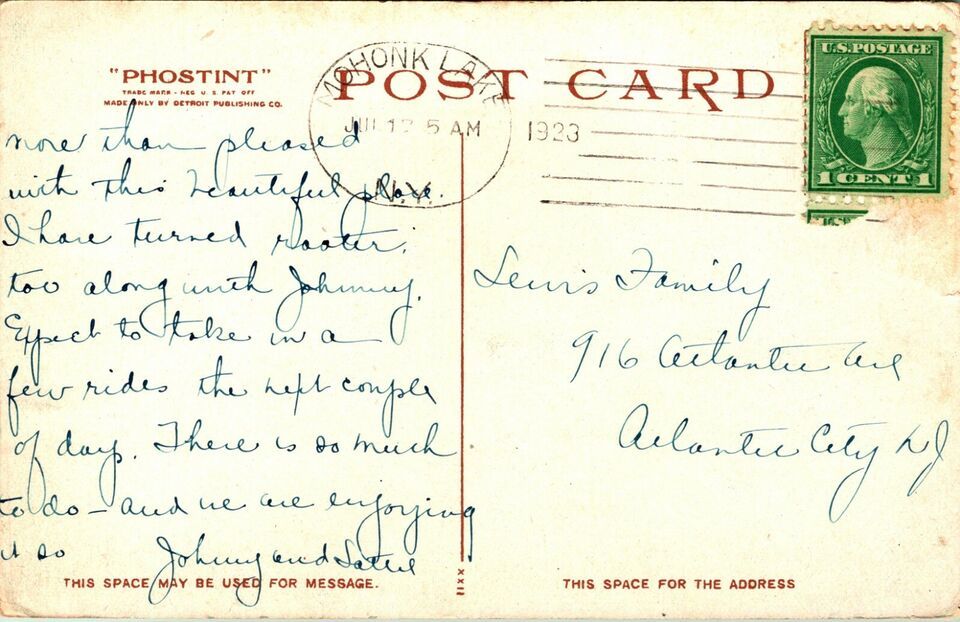 "PHOSTINT"
TRADE MARK - REG U. S. PAT OFF
MADE ONLY BY DETROIT PUBLISHING CO.
POST CARD
MOHONK LAKE
JUL 12 5 AM
1923
N.Y.
U.S. POSTAGE
1 CENT 1
more than pleased
with this beautiful place.
I have turned rooter
too along with Johnny.
Expect to take in a
few rides the next couple
of days. There is so much
to do - and we are enjoying
it so
Johnny and
Lewis Family
916 Atlantic Ave
Atlantic City NJ
THIS SPACE MAY BE USED FOR MESSAGE.
THIS SPACE FOR THE ADDRESS